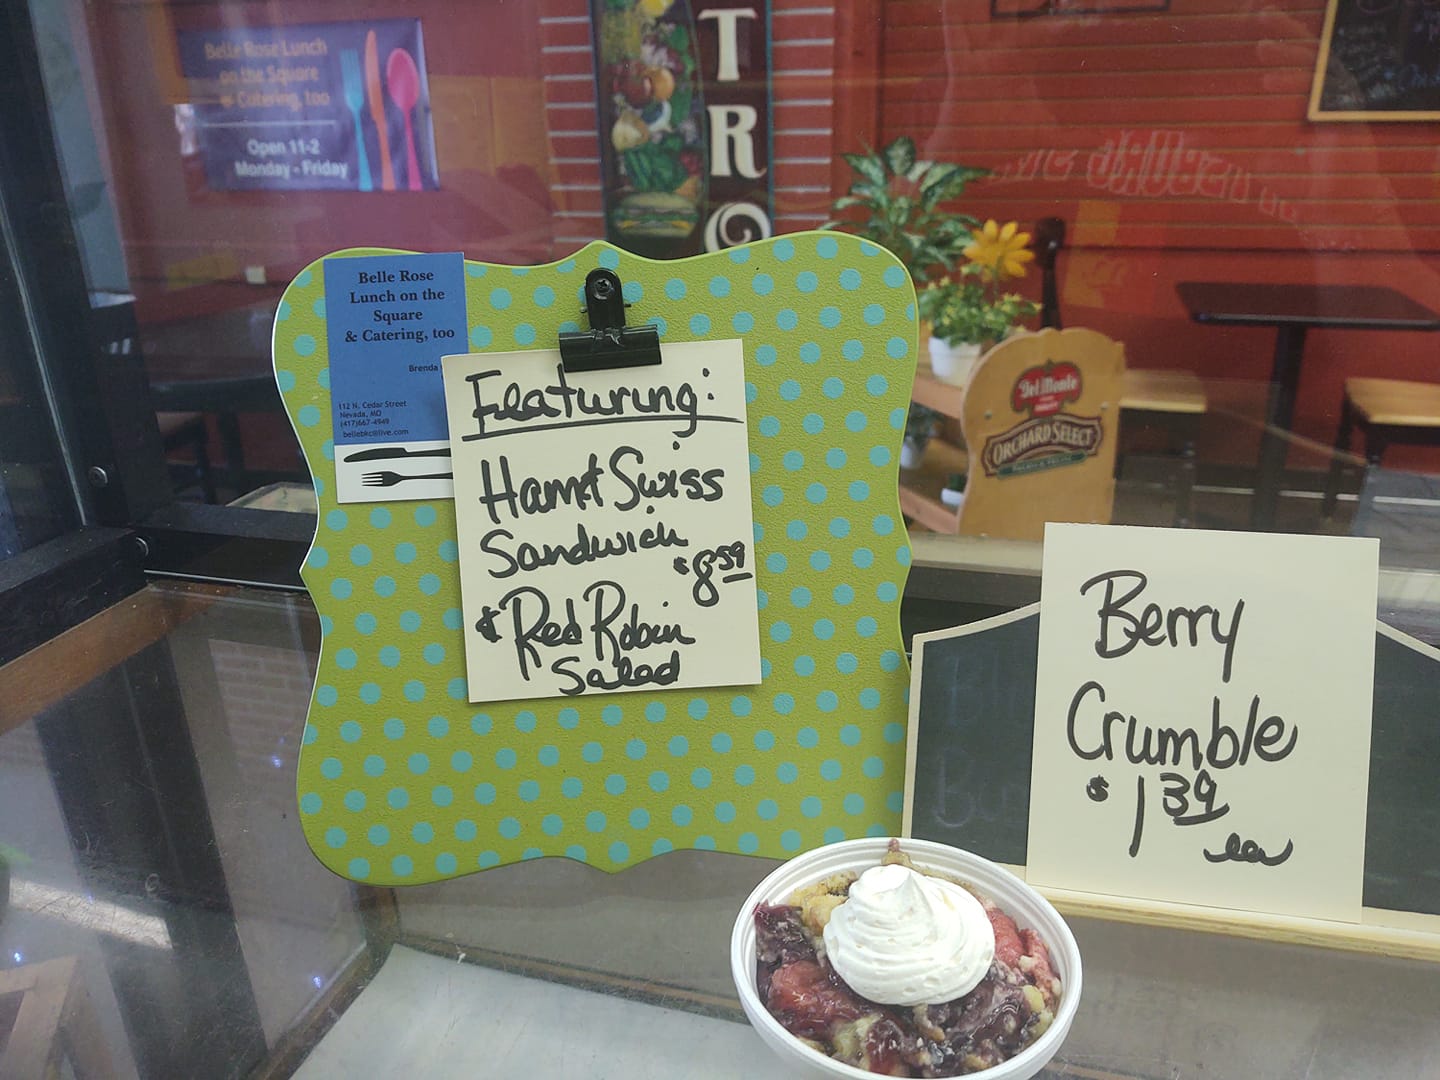 Belle Rose Lunch
on the Square
& Catering, too
Open 11-2
Monday - Friday
TRO
Belle Rose
Lunch on the
Square
& Catering, too
Brenda
112 N. Cedar Street
Nevada, MO
(417)667-4949
bellebkc@live.com
Featuring:
Ham & Swiss
Sandwich
$8.59
& Red Robin
Salad
Del Monte
ORCHARD SELECT
Berry
Crumble
$1.39
ea